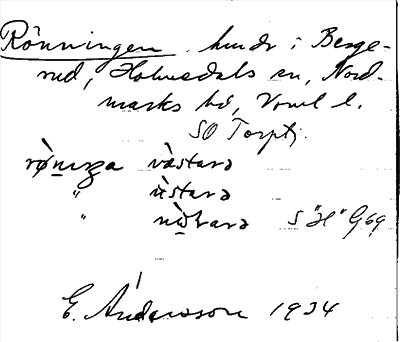 Rönningen, hmdr i Berge-
rud, Holmedals sn, Nord-
marks hd, Vrml l.
SO Torptj.
rø̀nıŋa västarə
" ùstarə
" nòlarə S "H" G 69
E. Andersson 1934